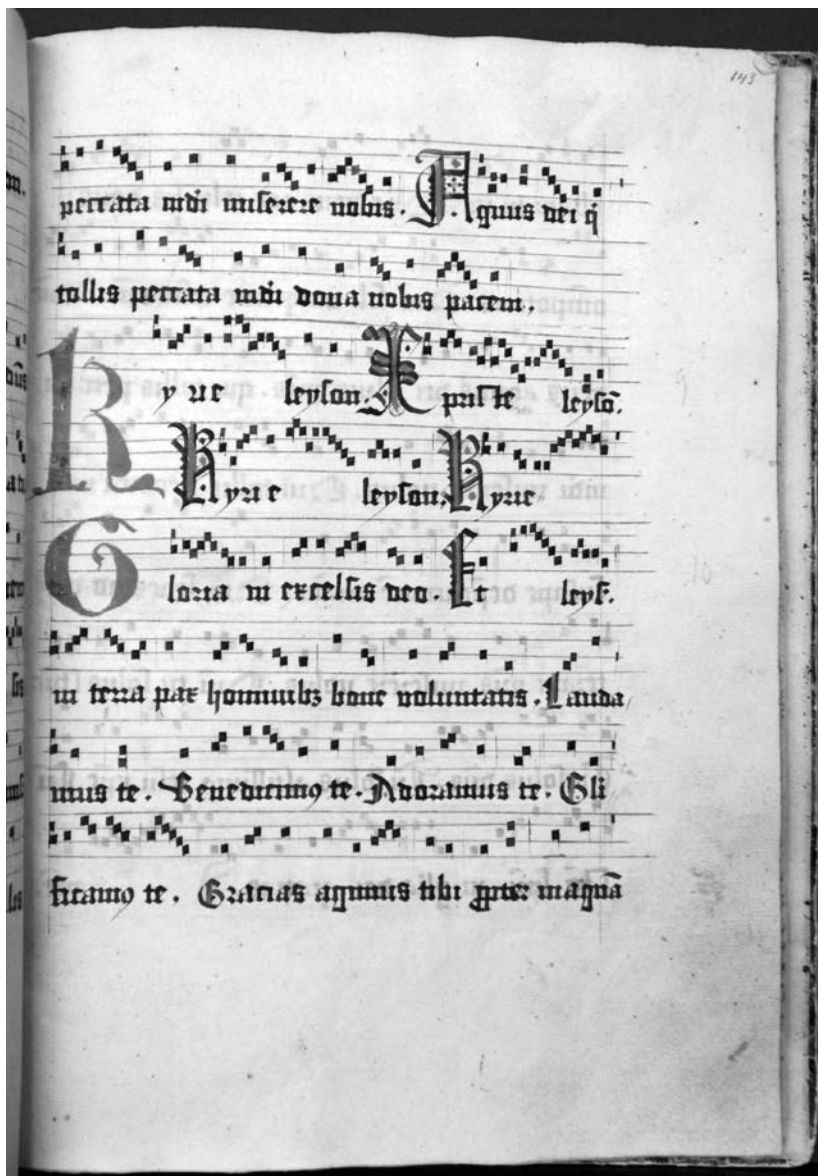 143
peccata mdi miserere nobis. Agnus dei q
tollis peccata mdi dona nobis pacem.
Kyrie leyson. Xpiste leyso.
Kyrie leyson. Kyrie
Gloria in excelsis deo. Et leys.
in terra pax hominibz bone voluntatis. Lauda
mus te. Benedicimꝰ te. Adoramus te. Gli
ficamꝰ te. Gracias agimus tibi ꝓpter magnā